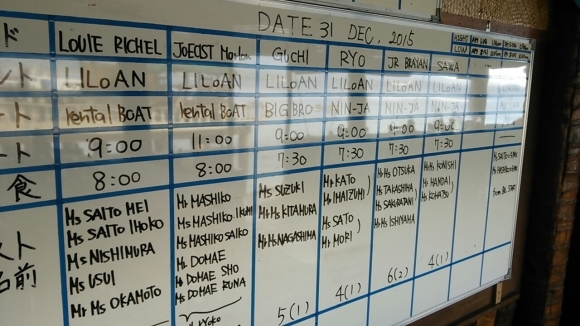 DATE 31 DEC. 2015
ド LOUIE RICHEL JOECIST GUCHI RYO JR BRAYAN SAWA
ント LILOAN LILOAN LILOAN LILOAN LILOAN LILOAN
ート rental BOAT rental BOAT BIG BRO NIN-JA NIN-JA NIN-JA
ート 9:00 11:00 9:00 9:00 9:00 9:00
食 8:00 8:00 7:30 7:30 7:30 7:30
スト
名前
Ms SAITO MEI
Ms SAITO IHOKO
Ms NISHIMURA
Ms USUI
Mr Ms OKAMOTO
Mr MASHIKO
Ms MASHIKO
Ms MASHIKO SAIKO
Mr DOMAE
Ms DOMAE SHO
Ms DOMAE RUNA
Ms SUZUKI
Mr Ms KITAMURA
Mr Ms NAGASHIMA
5(1)
Mr KATO
Mr IMAIZUMI
Ms SATO
Mr MORI
4(1)
Mr Ms OTSUKA
Ms TAKASHIMA
Ms SAKURATANI
Mr Ms ISHIYAMA
6(2)
Mr Ms KONISHI
Mr HANDAI
Ms KOHATSU
4(1)